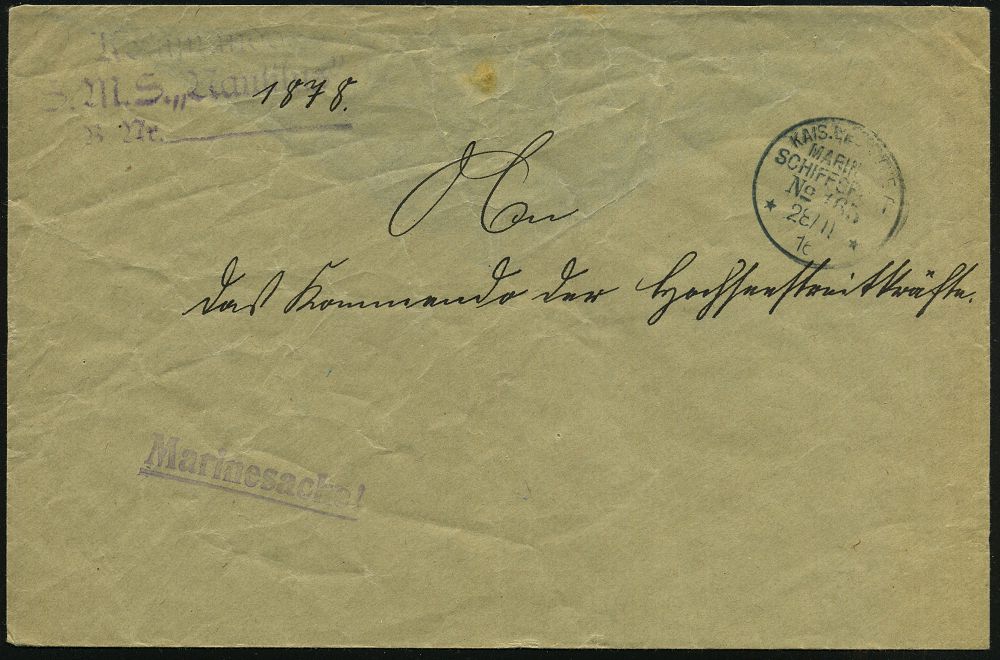 Kommando
S.M.S. „Nautilus"
B. Nr. 1878.
KAIS. DEUTSCHE
MARINE-
SCHIFFSPOST
No 165
* 28/11 *
16
An
das Kommando der Hochseestreitkräfte.
Marinesache!